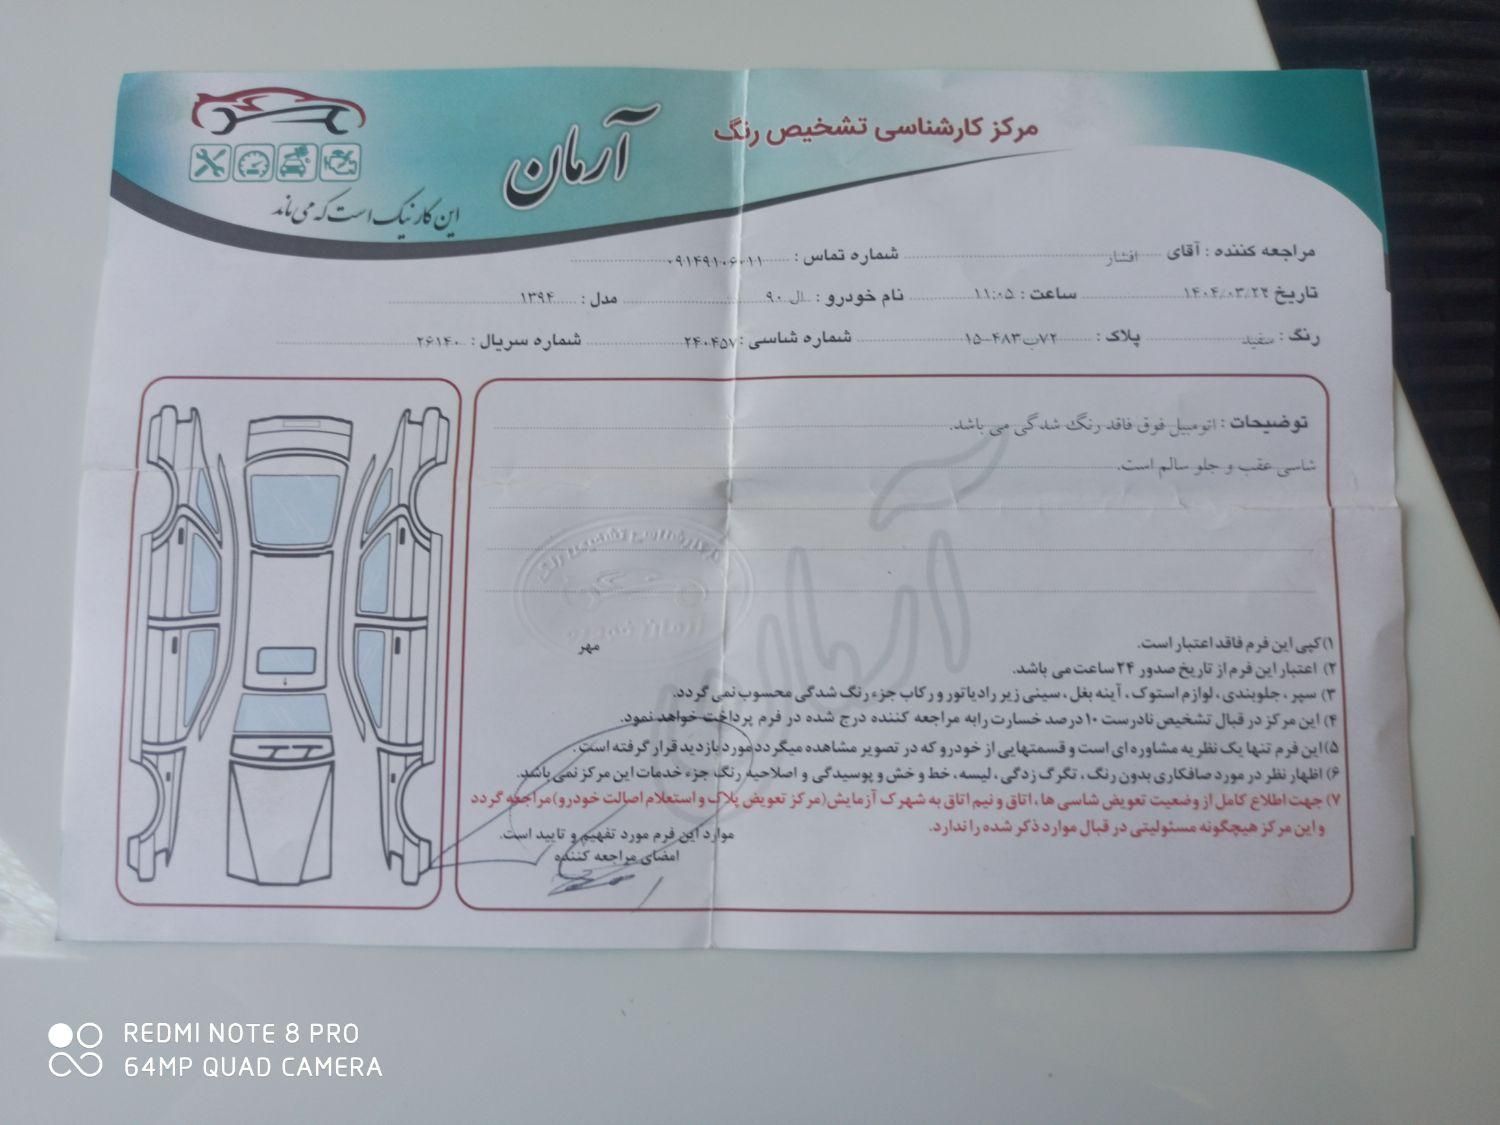 مرکز کارشناسی تشخیص رنگ
آرمان
این کار نیک است که می ماند
مراجعه کننده : آقای افشار شماره تماس : ۰۹۱۴۹۱۰۶۰۱۱
تاریخ ۱۴۰۴/۰۳/۲۴ ساعت : ۱۱:۰۵ نام خودرو : ال ۹۰ مدل : ۱۳۹۴
رنگ : سفید پلاک : ۷۲ب۴۸۳-۱۵ شماره شاسی : ۲۴۰۴۵۷ شماره سریال : ۲۶۱۴۰
توضیحات : اتومبیل فوق فاقد رنگ شدگی می باشد.
شاسی عقب و جلو سالم است.
آرمان
مرکز کارشناسی تشخیص رنگ
آرمان خودرو
مهر
۱) کپی این فرم فاقد اعتبار است.
۲) اعتبار این فرم از تاریخ صدور ۲۴ ساعت می باشد.
۳) سپر ، جلوبندی ، لوازم استوک ، آینه بغل ، سینی زیر رادیاتور و رکاب جزء رنگ شدگی محسوب نمی گردد.
۴) این مرکز در قبال تشخیص نادرست ۱۰ درصد خسارت را به مراجعه کننده درج شده در فرم پرداخت خواهد نمود.
۵) این فرم تنها یک نظریه مشاوره ای است و قسمتهایی از خودرو که در تصویر مشاهده میگردد مورد بازدید قرار گرفته است.
۶) اظهار نظر در مورد صافکاری بدون رنگ ، تگرگ زدگی ، لیسه ، خط و خش و پوسیدگی و اصلاحیه رنگ جزء خدمات این مرکز نمی باشد.
۷) جهت اطلاع کامل از وضعیت تعویض شاسی ها ، اتاق و نیم اتاق به شهرک آزمایش (مرکز تعویض پلاک و استعلام اصالت خودرو) مراجعه گردد
و این مرکز هیچگونه مسئولیتی در قبال موارد ذکر شده را ندارد.
موارد این فرم مورد تفهیم و تایید است.
امضای مراجعه کننده
REDMI NOTE 8 PRO
64MP QUAD CAMERA